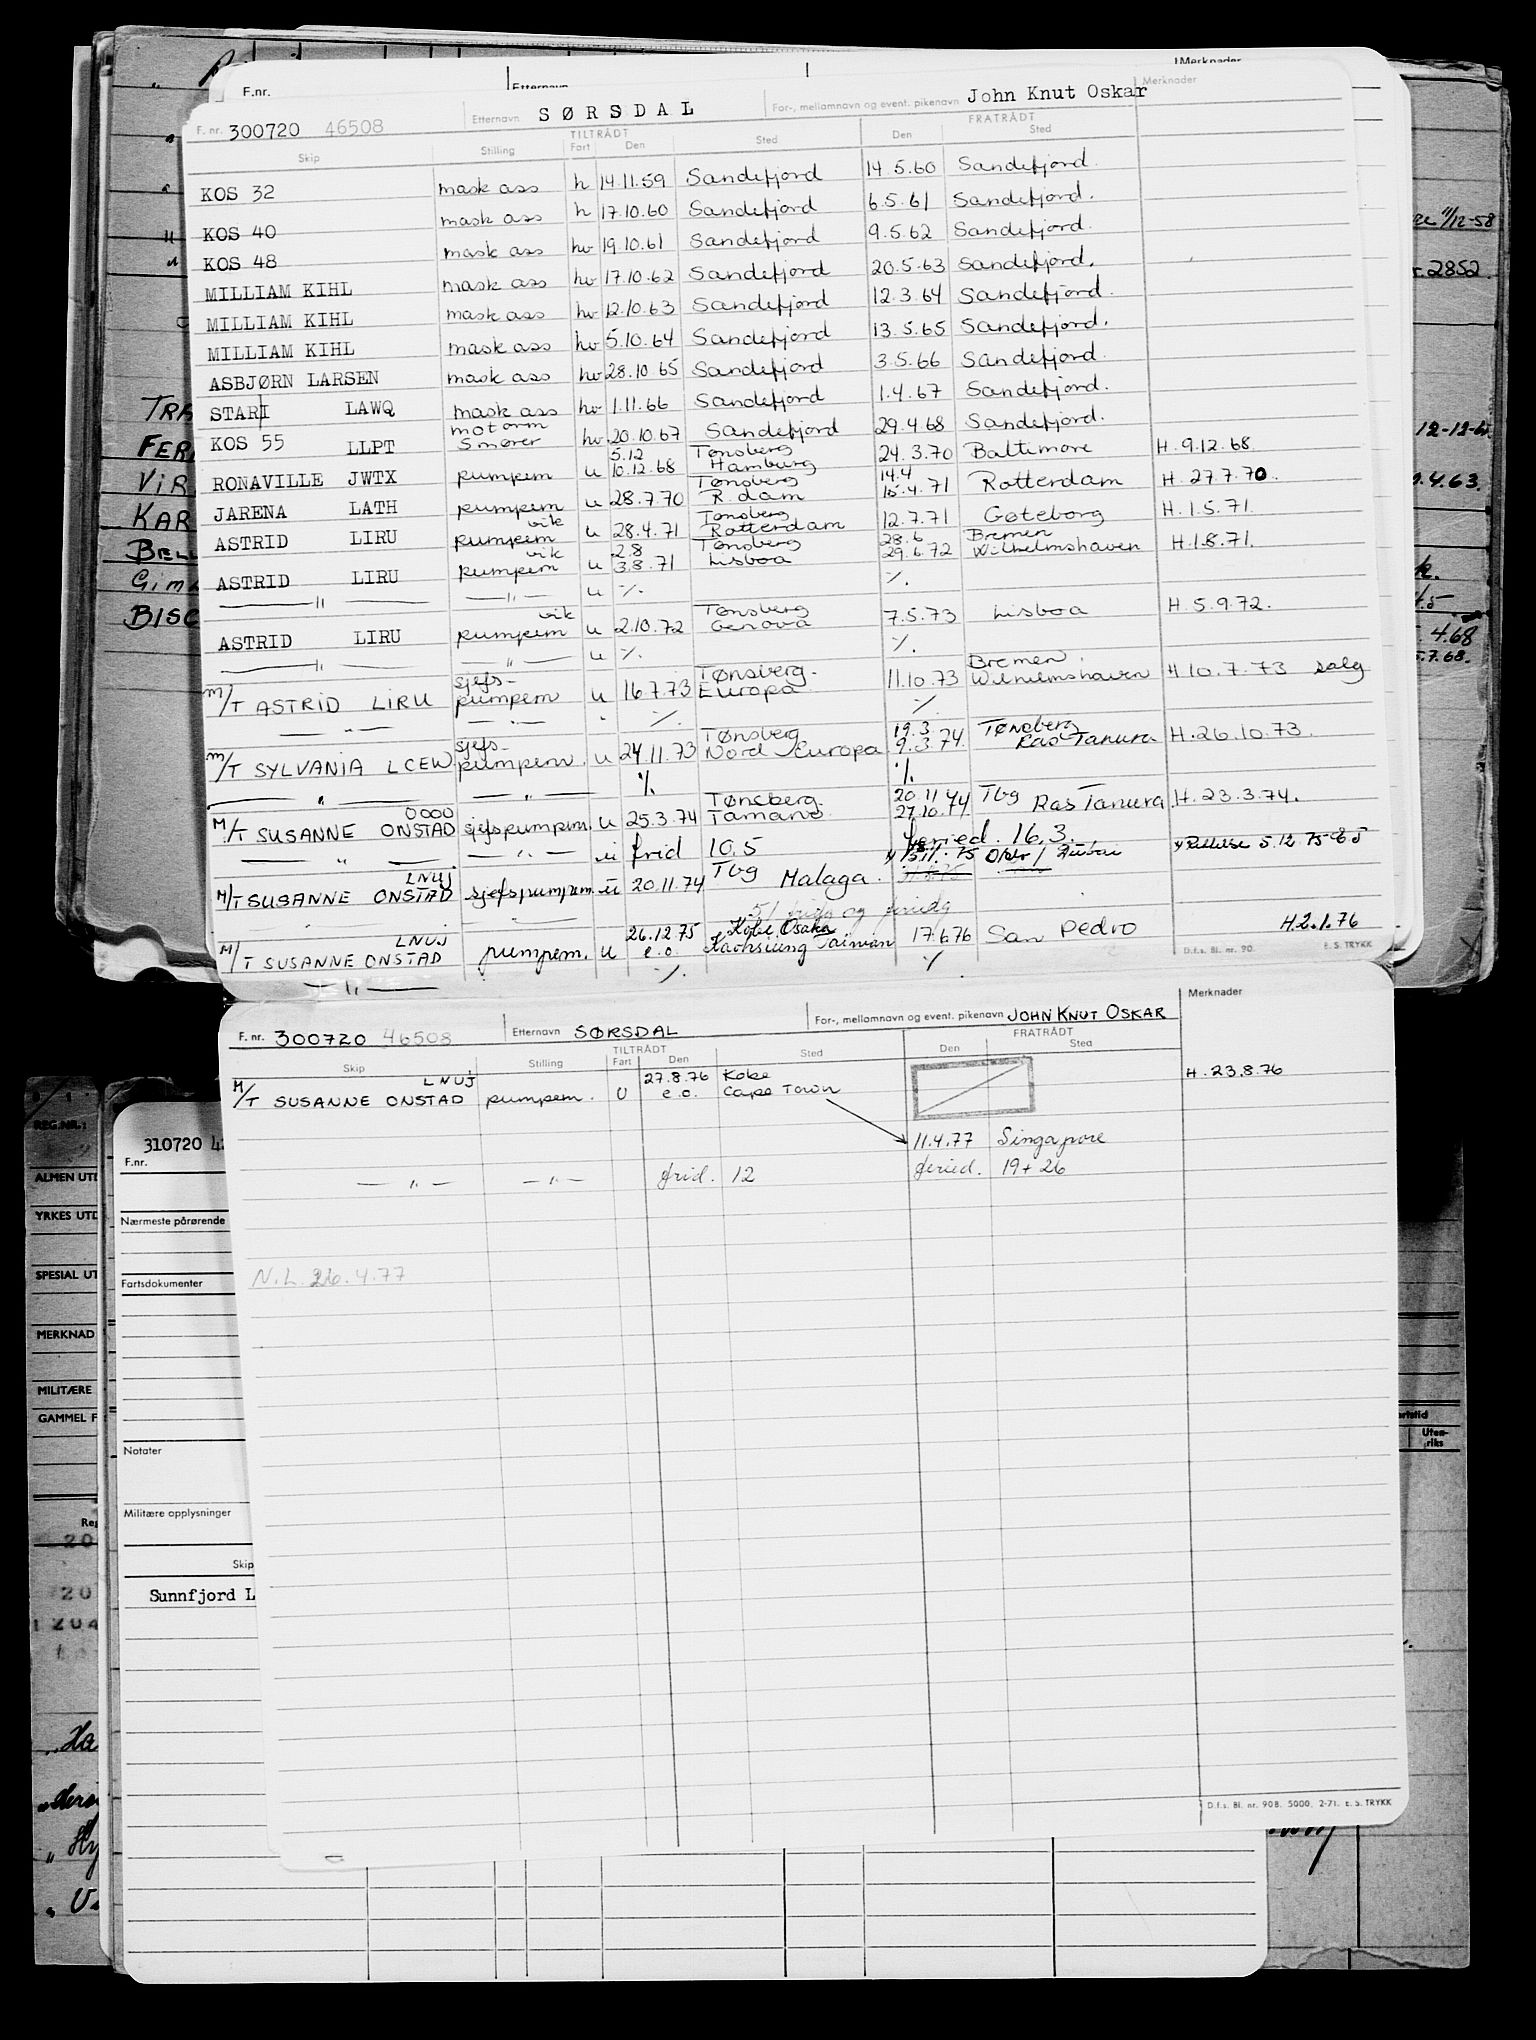 F.nr.
Etternavn
Merknader
F. nr. 300720 46508 Etternavn SØRSDAL For-, mellomnavn og event. pikenavn John Knut Oskar Merknader
TILTRÅDT FRATRÅDT
Skip Stilling Fart Den Sted Den Sted
KOS 32 mask ass h 14.11.59 Sandefjord 14.5.60 Sandefjord.
KOS 40 mask ass h 17.10.60 Sandefjord 6.5.61 Sandefjord.
KOS 48 mask ass hv 19.10.61 Sandefjord 9.5.62 Sandefjord.
MILLIAM KIHL mask ass hv 17.10.62 Sandefjord 20.5.63 Sandefjord.
MILLIAM KIHL mask ass hv 12.10.63 Sandefjord 12.3.64 Sandefjord.
MILLIAM KIHL mask ass hv 5.10.64 Sandefjord 13.5.65 Sandefjord.
ASBJØRN LARSEN mask ass hv 28.10 65 Sandefjord 3.5.66 Sandefjord.
STARI LAWQ mask ass hv 1.11.66 Sandefjord 1.4.67 Sandefjord.
motorm
KOS 55 LLPT Smører hv 20.10.67 Sandefjord 29.4.68 Sandefjord.
5.12 Tønsberg
RONAVILLE JWTX pumpem u 10.12.68 Hamburg 24.3.70 Baltimore H. 9.12.68
Tønsberg 14.4
JARENA LATH pumpem u 28.7.70 R.dam 15.4.71 Rotterdam H. 27.7.70
vik Tønsberg
ASTRID LIRU pumpem u 28.4.71 Rotterdam 12.7.71 Gøteborg H. 1.5.71
vik 2.8 Tønsberg 28.6 Bremen
ASTRID LIRU pumpem u 3.8.71 Lisboa 29.6.72 Wilhelmshaven H. 1.8.71.
— " — — " — u ٪. ٪.
vik Tønsberg
ASTRID LIRU pumpem u 2.10.72 Genova 7.5.73 Lisboa H. 5.9.72.
— " — — " — u ٪. ٪.
sjefs- Tønsberg. Bremen.
M/T ASTRID LIRU pumpem u 16.7.73 Europa 11.10.73 Wilhelmshaven H.10.7.73 salg
— " — — " — " ٪. ٪.
sjefs- Tønsberg 19.3. Tønsberg
M/T SYLVANIA LCEW pumpem. u 24.11.73 Nord Europa 9.3.74 Ras Tanura H.26.10.73.
— " — — " — ٪. ٪.
OOOO Tønsberg. 20.11
M/T SUSANNE ONSTAD sjefspumpem. u 25.3.74 27.10.74 Tbg Ras Tanura H. 23.3.74.
— " — — " — u frid 10.5 feried. 16.3.
LNUJ
M/T SUSANNE ONSTAD sjefspumpem. u 20.11.74 Tbg Malaga. 11.75 Dubai x) Rettelse 5.12.75
51 frid og feried
LNUJ 26.12.75 Kobe Osaka
M/T SUSANNE ONSTAD pumpem. u e.o. Kaohsiung Taiwan 17.6.76 San Pedro H.2.1.76
— " — ٪. ٪.
D.f.s. Bl. nr. 90. E. S. TRYKK
Merknader
F. nr. 300720 46508 Etternavn SØRSDAL For-, mellomnavn og event. pikenavn JOHN KNUT OSKAR
TILTRÅDT FRATRÅDT
Skip Stilling Fart Den Sted Den Sted
LNUJ 27.8.76 Kobe H. 23.8.76
M/T SUSANNE ONSTAD pumpem. U e.o. Cape Town
11.4.77 Singapore
— " — — " — frid. 12 feried. 19 + 26
N.L. 26.4.77
D.f.s. Bl. nr. 90B. 5000. 2-71. E. S. TRYKK
TRA
FER
VIR
KAR
BELL
Gim
BISC
11/12-58
2852
12-12-6
4.63.
4.68
5.7.68.
REG.NR.:
ALMEN UTD
YRKES UTD
SPESIAL UT
MERKNAD
MILITÆRE
GAMMEL F
Reg
310720
F.nr.
Nærmeste pårørende
Fartsdokumenter
Notater
Militære opplysninger
Skip
Sunnfjord L
Uten-
riks